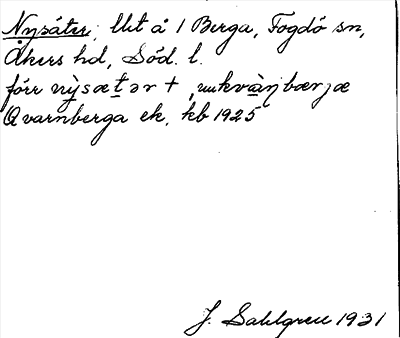 Nysäter, lht å 1 Berga, Fogdö sn,
Åkers hd, Söd. l.
förr nỳsætər †, kvànbærjæ
Qvarnberga ek, kb 1925
J. Sahlgren 1931